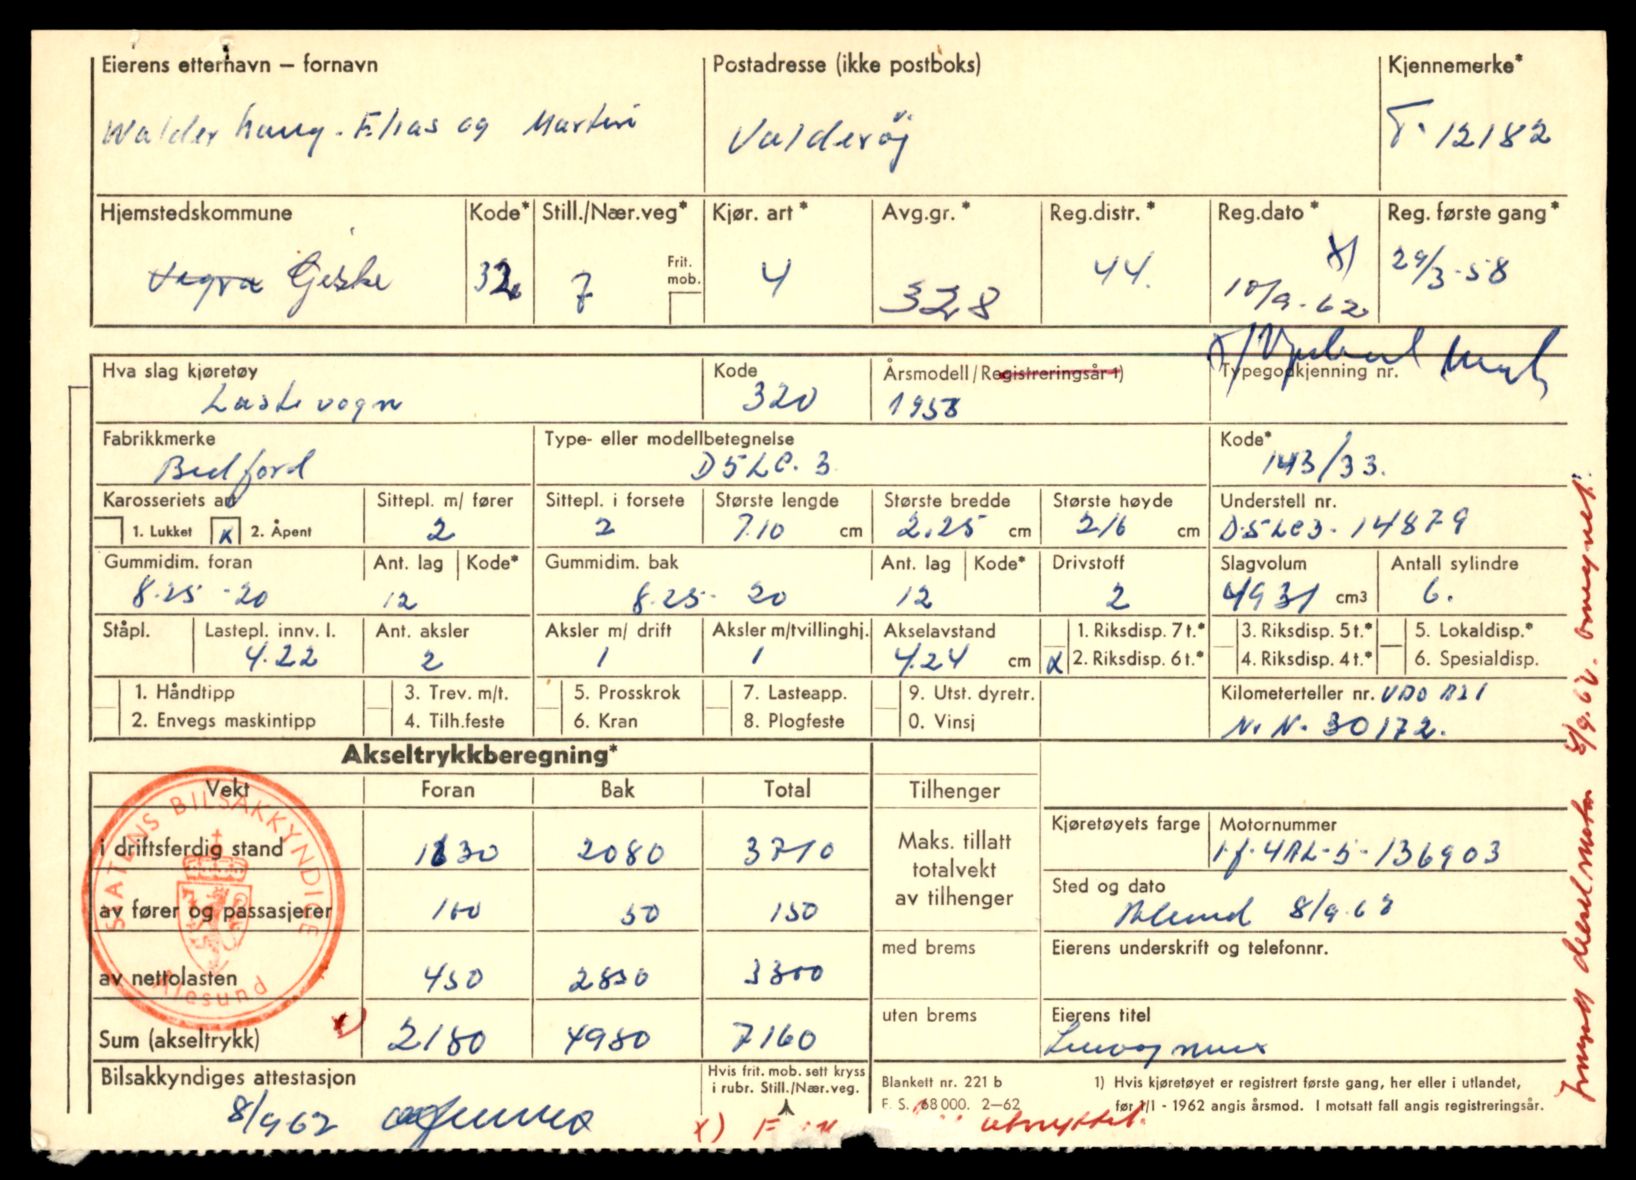 Eierens etternavn – fornavn Postadresse (ikke postboks) Kjennemerke*
Walderhaug. Elias og Martin Valderøy T-12182
Hjemstedskommune Kode* Still./Nær.veg* Kjør. art* Avg.gr.* Reg.distr.* Reg.dato* Reg. første gang*
Vigra Giske 32 7 Frit. mob. 4 328 44. x) 10/9-62 29/3-58
x)
Hva slag kjøretøy Kode Årsmodell/Registreringsår 1) Typegodkjenning nr.
Lastevogn 320 1958
Fabrikkmerke Type- eller modellbetegnelse Kode*
Bedford D5LC.3 143/33.
Karosseriets art Sittepl. m/ fører Sittepl. i forsete Største lengde Største bredde Største høyde Understell nr.
1. Lukket x 2. Åpent 2 2 7.10 cm 2.25 cm 216 cm D5LC3-14879
Gummidim. foran Ant. lag Kode* Gummidim. bak Ant. lag Kode* Drivstoff Slagvolum Antall sylindre
8.25-20 12 8.25-20 12 2 4931 cm3 6.
Ståpl. Lastepl. innv. l. Ant. aksler Aksler m/ drift Aksler m/tvillinghj. Akselavstand 1. Riksdisp. 7 t.* 3. Riksdisp. 5 t.* 5. Lokaldisp.*
4.22 2 1 1 4.24 cm x 2. Riksdisp. 6 t.* 4. Riksdisp. 4 t.* 6. Spesialdisp.
1. Håndtipp 3. Trev. m/t. 5. Prosskrok 7. Lasteapp. 9. Utst. dyretr. Kilometerteller nr. VDO
2. Envegs maskintipp 4. Tilh.feste 6. Kran 8. Plogfeste 0. Vinsj N.N. 30172.
Akseltrykkberegning*
Vekt Foran Bak Total Tilhenger
i driftsferdig stand 1630 2080 3710
Maks. tillatt totalvekt av tilhenger
Kjøretøyets farge Motornummer
136903
av fører og passasjerer 100 50 150
Sted og dato
Ålesund 8/9.62
av nettolasten 450 2850 3300
med brems Eierens underskrift og telefonnr.
Sum (akseltrykk) x) 2180 4980 7160
uten brems Eierens titel
STATENS BILSAKKYNDIGE
Ålesund
Bilsakkyndiges attestasjon Hvis frit. mob. sett kryss i rubr. Still./Nær.veg.
8/9 62
Blankett nr. 221 b
F. S. 68 000. 2–62
1) Hvis kjøretøyet er registrert første gang, her eller i utlandet,
før 1/1 - 1962 angis årsmod. I motsatt fall angis registreringsår.
x) utnyttet.
Innsatt dieselmotor 8/9.62. omregnet.